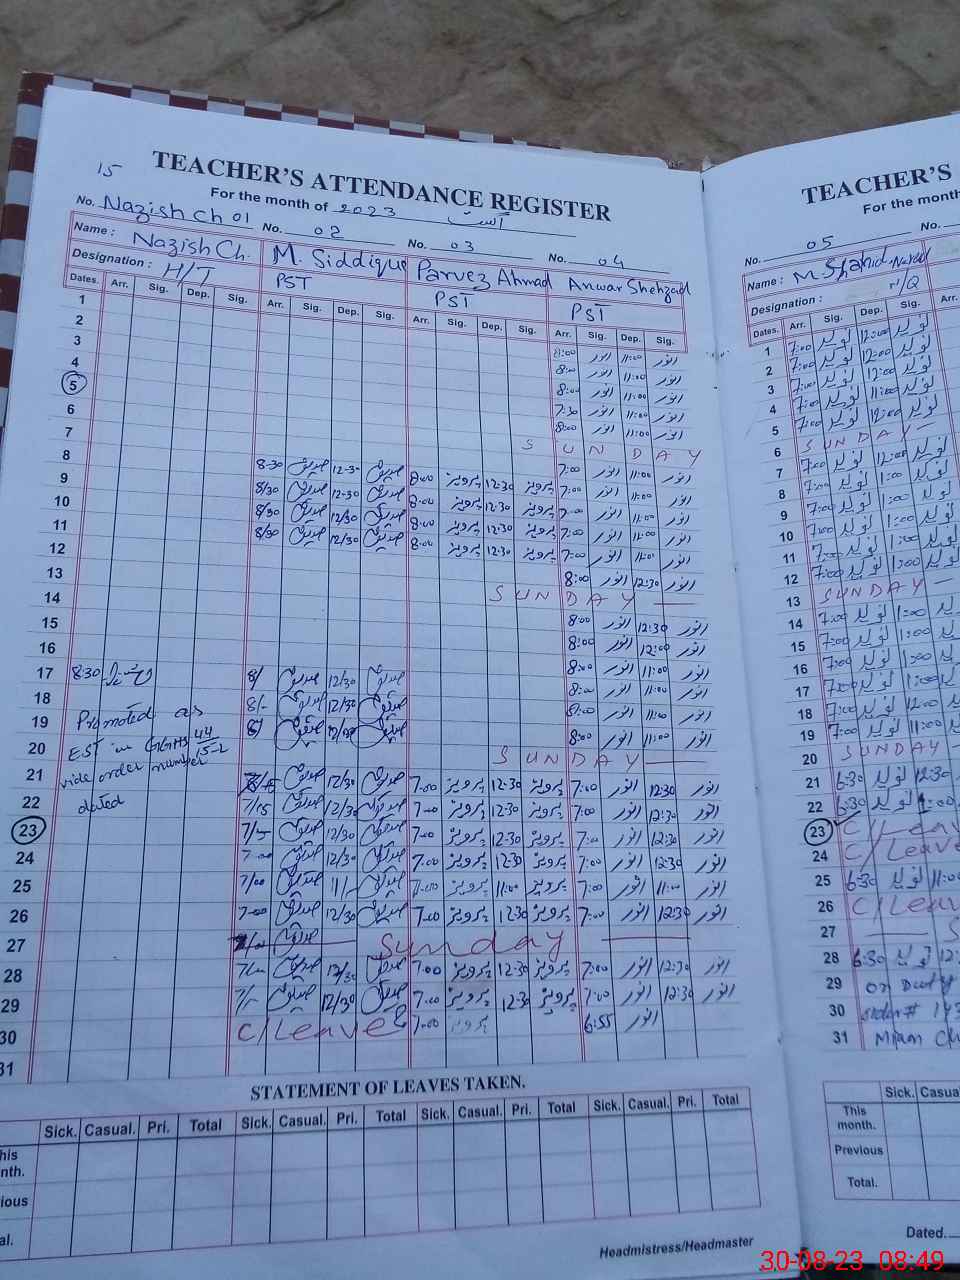 15
TEACHER'S ATTENDANCE REGISTER
For the month of 2023 اگست
No. Nazish Ch 01 No. 02 No. 03 No. 04
Name : Nazish Ch. M. Siddique Parvez Ahmad Anwar Shehzad
Designation : H/T PST PST PST
Dates. Arr. Sig. Dep. Sig. Arr. Sig. Dep. Sig. Arr. Sig. Dep. Sig. Arr. Sig. Dep. Sig.
1
2
3 8:00 انور 11:00 انور
4 8:00 انور 11:00 انور
5 8:00 انور 11:00 انور
6 7:30 انور 11:00 انور
7 8:00 انور 11:00 انور
SUNDAY
8 8-30 صدیق 12-30 صدیق 8:00 پرویز 12:30 پرویز 7:00 انور 11:00 انور
9 8/30 صدیق 12-30 صدیق 8:00 پرویز 12:30 پرویز 7:00 انور 11:00 انور
10 8/30 صدیق 12/30 صدیق 8:00 پرویز 12:30 پرویز 7:00 انور 11:00 انور
11 8/30 صدیق 12/30 صدیق 8:00 پرویز 12:30 پرویز 7:00 انور 11:00 انور
12 8:00 انور 12:30 انور
13 SUNDAY
14 8:00 انور 12:30 انور
15 8:00 انور 12:00 انور
16 8:00 انور 11:00 انور
17 8:30 8/ صدیق 12/30 صدیق 8:00 انور 11:00 انور
18 8/- صدیق 12/30 صدیق 8:00 انور 11:00 انور
19 صدیق 12/30 صدیق 8:00 انور 11:00 انور
Promoted as
EST in GGHS 44/15-L
vide order number
dated
20 SUNDAY
21 صدیق 12/30 صدیق 7:00 پرویز 12:30 پرویز 7:00 انور 12:30 انور
22 7/15 صدیق 12/30 صدیق 7:00 پرویز 12:30 پرویز 7:00 انور 12:30 انور
23 7/- صدیق 12/30 صدیق 7:00 پرویز 12:30 پرویز 7:00 انور 12:30 انور
24 7-00 صدیق 12/30 صدیق 7:00 پرویز 12:30 پرویز 7:00 انور 12:30 انور
25 7/00 صدیق 11/- صدیق 7:00 پرویز 11:00 پرویز 7:00 انور 11:00 انور
26 7-00 صدیق 12/30 صدیق 7:00 پرویز 12:30 پرویز 7:00 انور 12:30 انور
27 صدیق Sunday
28 صدیق 12/30 صدیق 7:00 پرویز 12:30 پرویز 7:00 انور 12:30 انور
29 7/- صدیق 12/30 صدیق 7:00 پرویز 12:30 پرویز 7:00 انور 12:30 انور
30 C/Leave 7:00 پرویز 6:55 انور
31
STATEMENT OF LEAVES TAKEN.
Sick. Casual. Pri. Total Sick. Casual. Pri. Total Sick. Casual. Pri. Total Sick. Casual. Pri. Total
his
nth.
ious
al.
Headmistress/Headmaster
TEACHER'S
For the month
05 No.
Name : M. Shahid Naved
Designation : N/Q
Dates. Arr. Sig. Dep. Sig. Arr.
1 7:00 نوید 12:00 نوید
2 7:00 نوید 12:00 نوید
3 7:00 نوید 12:00 نوید
4 7:00 نوید 11:00 نوید
5 7:00 نوید 12:00 نوید
6 SUNDAY
7 7:00 نوید 12:00 نوید
8 7:00 نوید 1:00 نوید
9 7:00 نوید 1:00 نوید
10 7:00 نوید 1:00 نوید
11 7:00 نوید 1:00 نوید
12 7:00 نوید 1:00 نوید
13 SUNDAY
14 7:00 نوید 1:00
15 7:00 نوید 1:00
16 7:00 نوید 1:00
17 7:00 نوید 1:00
18 7:00 نوید 12:00
19 7:00 نوید 11:00
20 SUNDAY
21 6:30 نوید 12:30
22 6:30 نوید 1:00
23 C/Leav
24 C/Leave
25 6:30 نوید 11:00
26 C/Leav
27 S
28 6:30 نوید 12:
29 on Duty
30 order #
31 Mian Ch
Sick. Casua
This
month.
Previous
Total.
Dated.
30-08-23 08:49